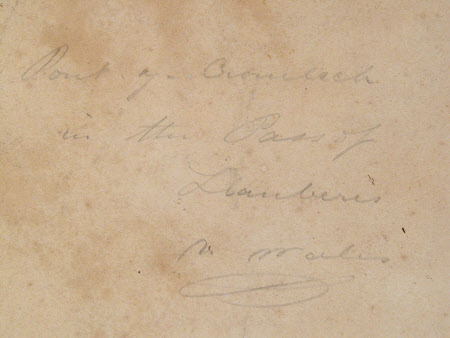 Pont y Cromlech
in the Pass of
Llanberis
N. Wales